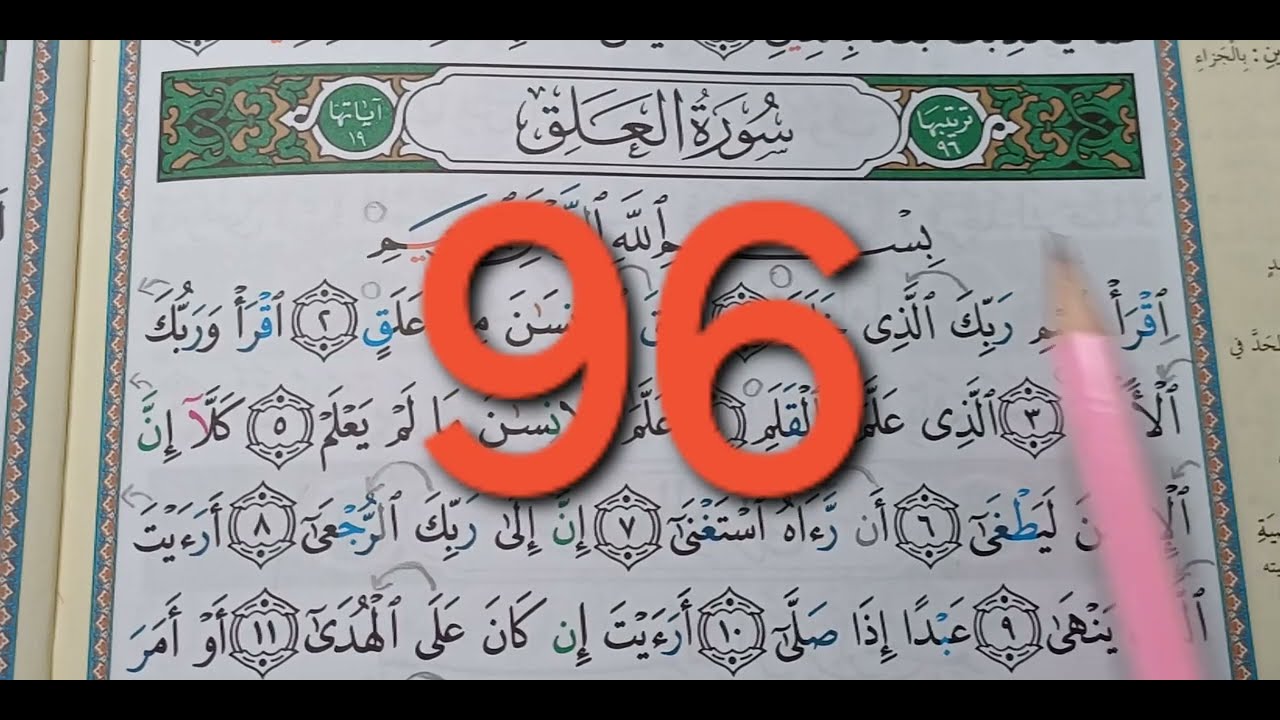 بِالْجَزَاءِ
ترتيبها ٩٦ سُورَةُ العَلَقِ آياتها ١٩
96
بِسْمِ ٱللَّهِ
ٱِقْرَأْ رَبِّكَ ٱلَّذِى عَلَقٍ ٢ ٱقْرَأْ وَرَبُّكَ
٣ ٱلَّذِى عَلَّمَ بِٱلْقَلَمِ عَلَّمَ مَا لَمْ يَعْلَمْ ٥ كَلَّآ إِنَّ
لَيَطْغَىٰٓ ٦ أَن رَّءَاهُ ٱسْتَغْنَىٰٓ ٧ إِنَّ إِلَىٰ رَبِّكَ ٱلرُّجْعَىٰٓ ٨ أَرَءَيْتَ
يَنْهَىٰ ٩ عَبْدًا إِذَا صَلَّىٰٓ ١٠ أَرَءَيْتَ إِن كَانَ عَلَى ٱلْهُدَىٰٓ ١١ أَوْ أَمَرَ